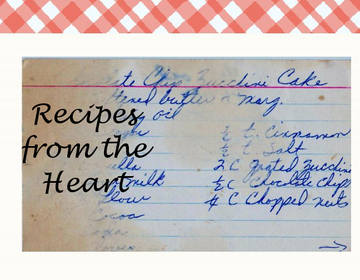 Chip Zucchini Cake
butter or marg.
oil
Recipes
from the
Heart
milk
flour
Cocoa
½ t. Cinnamon
½ t. Salt
2 C grated Zucchini
½ C Chocolate Chips
4 C Chopped nuts